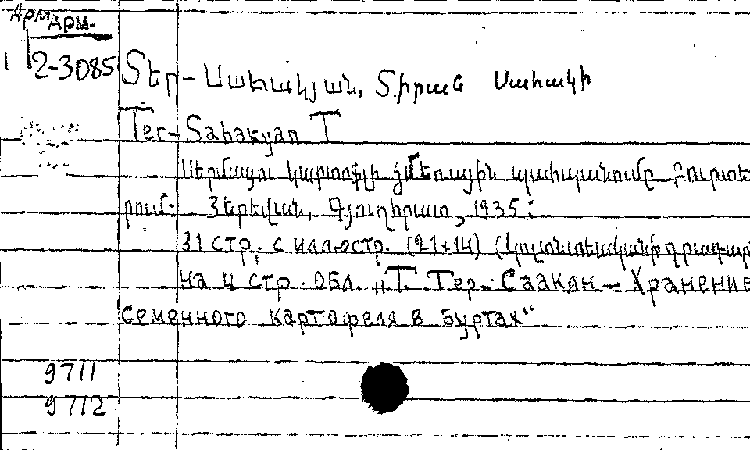 Арм арм.
2-3085 Տեր-Սահակյան, Տիրան Սահակի
Ter-Sahakyan T
Սերմացու կարտոֆլի ձմեռային պահպանումը բուրտե
րում: Յերեվան, Գյուղհրատ, 1935:
31 стр. с иллюстр. (21×14) (կոլտնտեսականի գրադար
На 4 стр. обл. „Т. Тер-Саакян — Хранение
семенного картофеля в буртах“
9711
9712